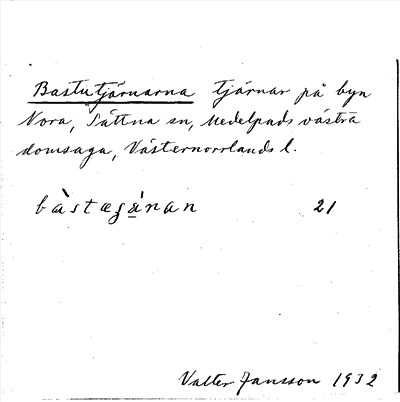 Bastutjärnarna tjärnar på byn
Nora, Sättna sn, Medelpads västra
domsaga, Västernorrlands l.
bàstæʒä́nan 21
Valter Jansson 1932